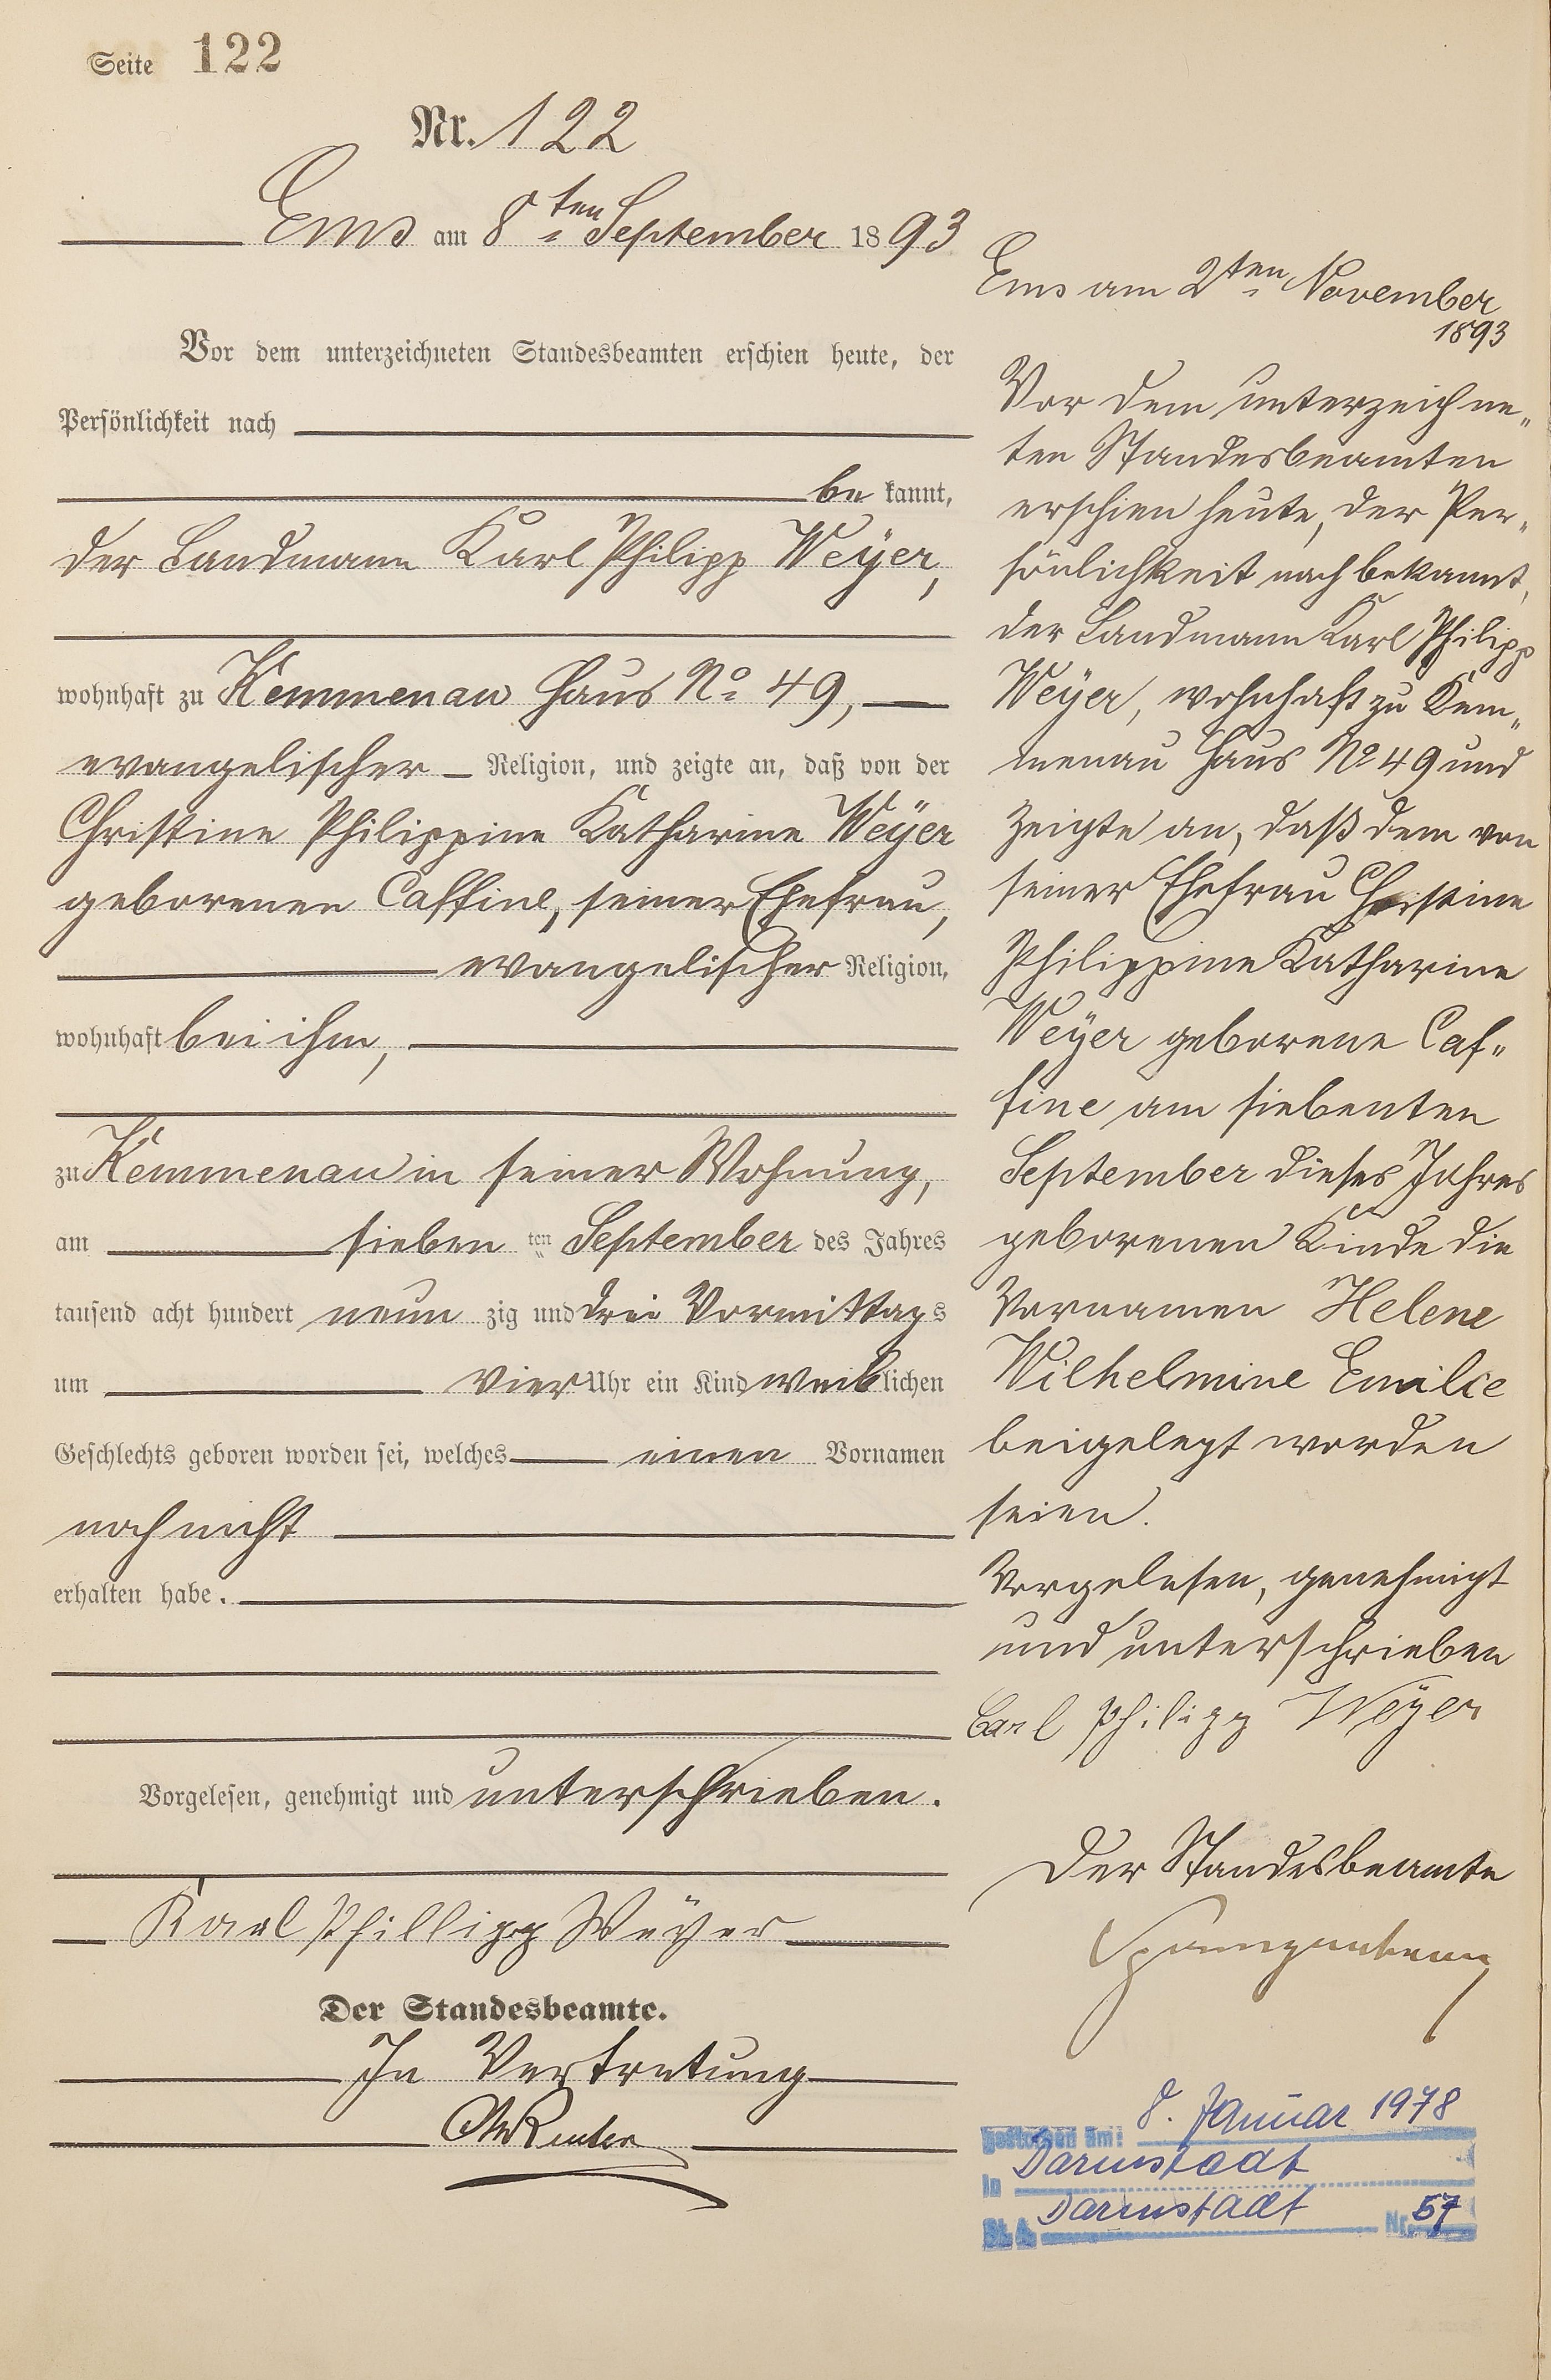 Seite 122
Nr. 122
Ems am 8ten September 1893
Vor dem unterzeichneten Standesbeamten erschien heute, der
Persönlichkeit nach
be kannt,
der Landmann Karl Philipp Weÿer,
wohnhaft zu Kemmenau Haus No 49,
evangelischer Religion, und zeigte an, daß von der
Christine Philippine Katharine Weÿer
geborenen Caffine, seiner Ehefrau,
evangelischer Religion,
wohnhaft bei ihm,
zu Kemmenau in seiner Wohnung,
am sieben ten September des Jahres
tausend acht hundert neun zig und drei Vormittags
um vier Uhr ein Kind weiblichen
Geschlechts geboren worden sei, welches einen Vornamen
noch nicht
erhalten habe.
Vorgelesen, genehmigt und unterschrieben.
Karl Phillipp Weÿer
Der Standesbeamte.
In Vertretung
Ems am 2ten November
1893
Vor dem unterzeichne„
ten Standesbeamten
erschien heute, der Per„
sönlichkeit nach bekannt,
der Landmann Karl Philipp
Weÿer, wohnhaft zu Kem„
menau Haus No 49 und
zeigte an, daß dem von
seiner Ehefrau Christine
Philippine Katharine
Weÿer geborene Caf„
fine am siebenten
September dieses Jahres
geborenen Kinde die
Vornamen Helene
Wilhelmine Emilie
beigelegt worden
seien.
Vorgelesen, genehmigt
und unterschrieben
Carl Philipp Weÿer
Der Standesbeamte
gestorben am: 8. Januar 1978
in Darmstadt
St. A. Darmstadt Nr. 57